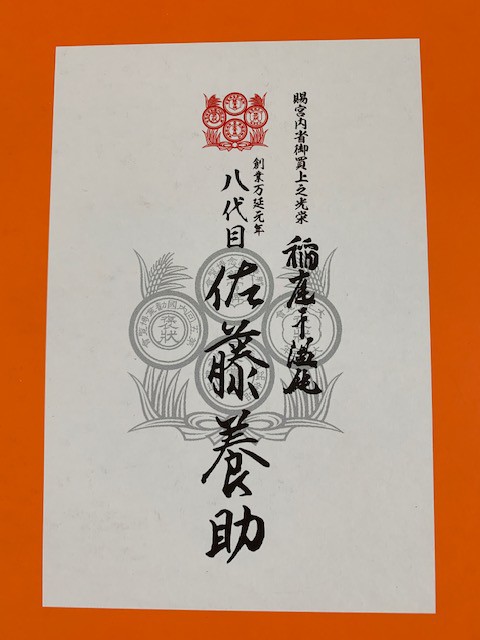 賜宮内省御買上之光栄
稲庭干温飩
創業万延元年
八代目
佐藤養助
褒状